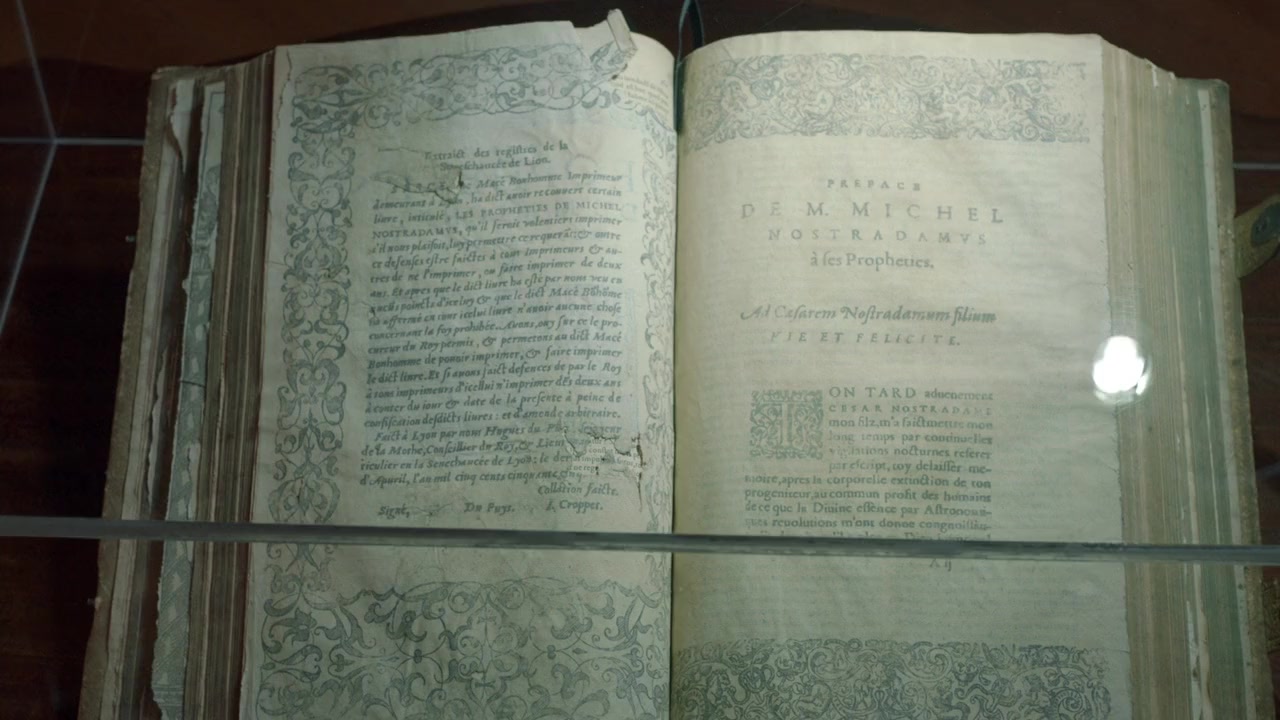 Extraict des registres de la
Seneschaucée de Lion.
Macé Bonhomme Imprimeur
demourant à Lyon, ha dict auoir recouvert certain
liure, intitulé, LES PROPHETIES DE MICHEL
NOSTRADAMVS, qu'il feroit volentiers imprimer
s'il nous plaisoit, luy permettre ce requerāt: & outre
ce defenses estre faictes à tous Imprimeurs & au-
tres de ne l'imprimer, ou faire imprimer de deux
ans. Et apres que le dict liure ha esté par nous veu en
poincts d'iceluy & que le dict Macé Bōhōme
ha affermé en tout icelui liure n'auoir aucune chose
concernant la foy prohibée. Auons, ouy sur ce le pro-
cureur du Roy permis, & permetons au dict Macé
Bonhomme de pouoir imprimer, & faire imprimer
le dict liure. Et si auons faict defences de par le Roy
à tous imprimeurs d'icellui n'imprimer dēs deux ans
à conter du iour & date de la presente à peine de
confiscation desdicts liures: et d'amende arbitraire.
Faict à Lyon par nous Hugues du Puis,
de la Mothe, Conseillier du Roy, & Lieu
riculier en la Senechaucée de Lyon: le der
d'Apuril, l'an mil cinq cents cinquante
Collation faicte.
Signé, Du Puys. I. Croppet.
PREFACE
DE M. MICHEL
NOSTRADAMVS
à ses Propheties.
Ad Cæsarem Nostradamum filium
VIE ET FELICITE.
TON TARD aduenement
CESAR NOSTRADAME
mon filz, m'a faict mettre mon
long temps par continuelles
vigilations nocturnes referer
par escript, toy delaisser me-
moire, apres la corporelle extinction de ton
progeniteur, au commun profit des humains
de ce que la Divine essence par Astronomi-
ques reuolutions m'ont donné congnoissan-